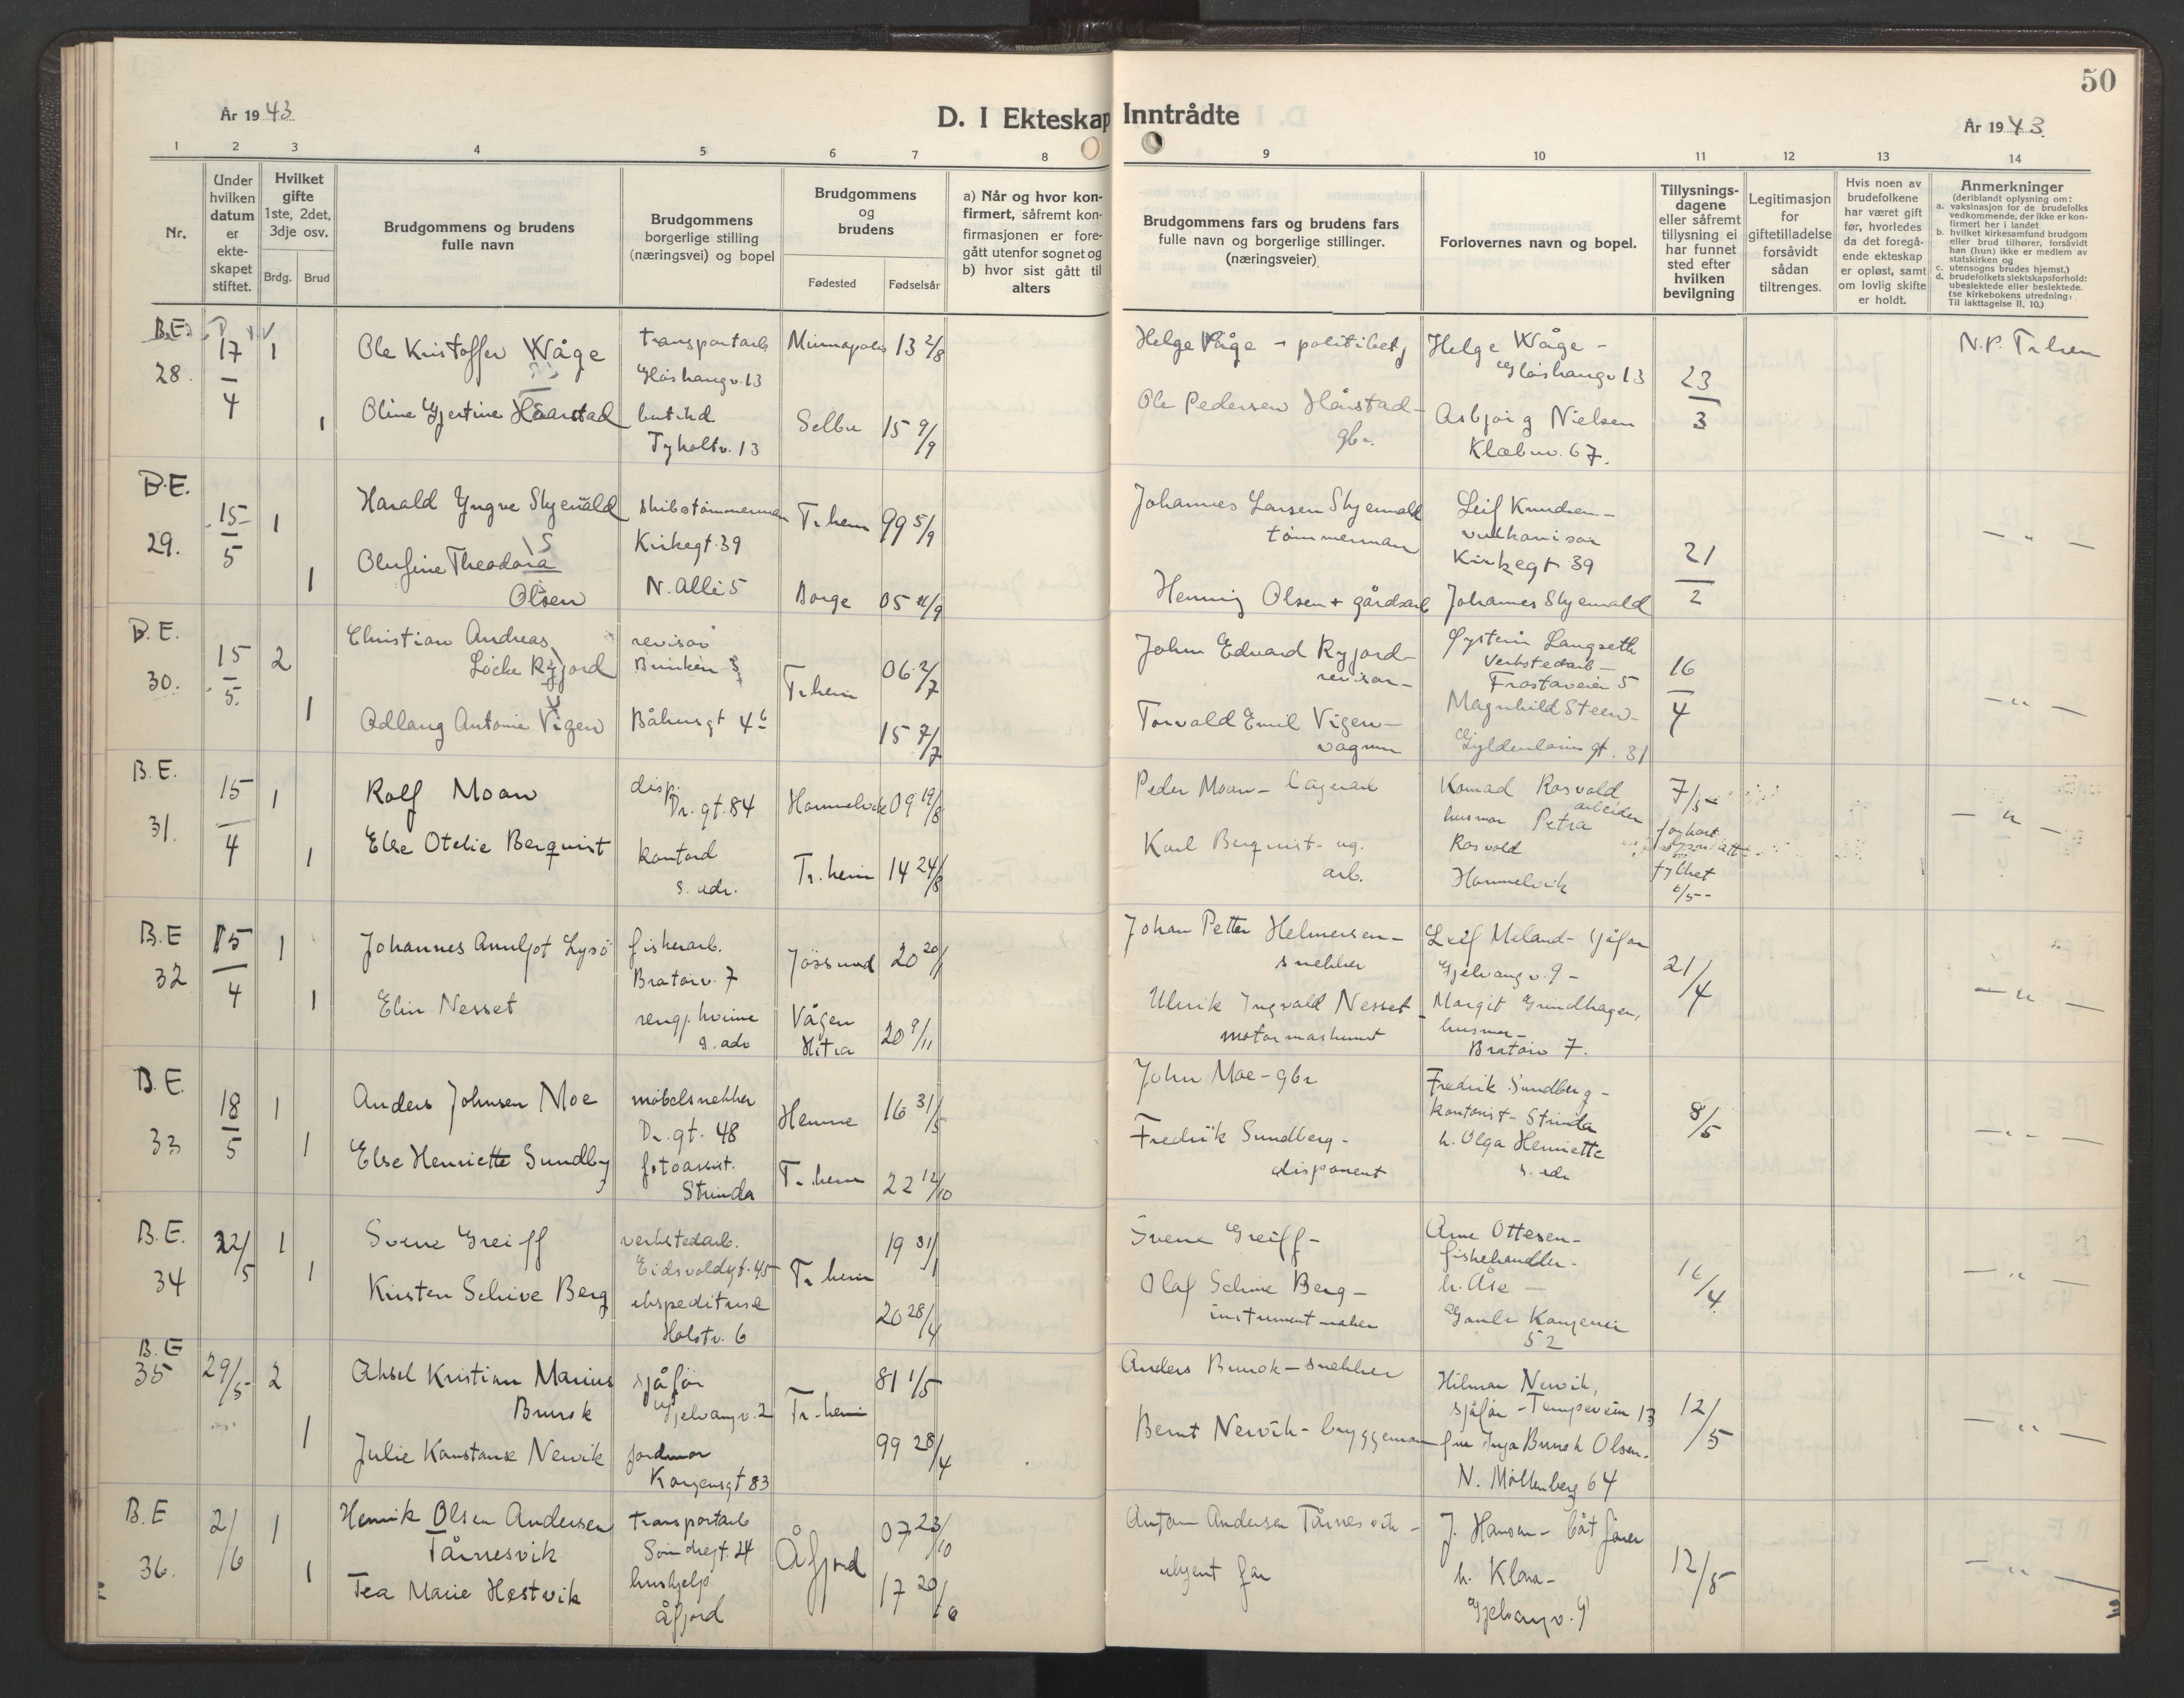 50
År 1943
D. I Ekteskap Inntrådte
År 1943
1 2 3 4 5 6 7 8 9 10 11 12 13 14
Nr.
Under
hvilken
datum
er
ekte-
skapet
stiftet.
Hvilket
gifte
1ste, 2det,
3dje osv.
Brdg. Brud
Brudgommens og brudens
fulle navn
Brudgommens
borgerlige stilling
(næringsvei) og bopel
Brudgommens
og
brudens
Fødested Fødselsår
a) Når og hvor kon-
firmert, såfremt kon-
firmasjonen er fore-
gått utenfor sognet og
b) hvor sist gått til
alters
Brudgommens fars og brudens fars
fulle navn og borgerlige stillinger.
(næringsveier)
Forlovernes navn og bopel.
Tillysnings-
dagene
eller såfremt
tillysning ei
har funnet
sted efter
hvilken
bevilgning
Legitimasjon
for
giftetilladelse
forsåvidt
sådan
tiltrenges.
Hvis noen av
brudefolkene
har været gift
før, hvorledes
da det foregå-
ende ekteskap
er opløst, samt
om lovlig skifte
er holdt.
Anmerkninger
(deriblandt oplysning om:
a. vaksinasjon for de brudefolks
vedkommende, der ikke er kon-
firmert her i landet
b. hvilket kirkesamfund brudgom
eller brud tilhører, forsåvidt
han (hun) ikke er medlem av
statskirken og
c. utensogns brudes hjemst.)
d. brudefolkets slektskapsforhold:
ubeslektede eller beslektede.
(se kirkebokens utredning:
Til iakttagelse II, 10.)
B.E.
28.
17/4
1
Ole Kristoffer Wåge
transportarb
Minnapolis 13 2/8
1
Oline Gjertine Haarstad
Tyholtv. 13
Selbu 15 9/9
Helge Våge
Ole Pedersen Hårstad
gbr.
Helge Wåge -
Asbjørg Nielsen
Klæbuv. 67.
23/3
N.P. Tr.heim
B.E.
29.
15/5
1
Harald Yngve Skjenald
skibstømmerman
Kirkegt. 39
Tr.heim 99 5/9
1
Olufine Theodora
Olsen
N. Allé 5
Borge 05
Johannes Larsen Skjenald
tømmerman
Henning Olsen + gårdsarb
Leif Knudsen -
vulkanisør
Kirkegt 39
Johannes Skjenald
21/2
— " —
B.E.
30.
15/5
2
Christian Andreas
Løcke Ryjord
revisor
Tr.heim
06 2/7
1
Odlaug Antonie Vigen
Båhusgt 4 b
15 7/7
John Edvard Ryjord -
revisor -
Torvald Emil Vigen -
vognm
Øystein Langseth
Verkstedarb -
Frostaveien 5
Magnhild Steen -
Gyldenløvesgt. 31
16/4
— " —
B.E.
31.
15/4
1
Rolf Moan
disp.
Dr. gt. 84
Hommelvik 09 19/8
1
Else Otelie Berquist
kontord
s. adr.
Tr.heim 14 24/8
Peder Moan - lagerarb
Karl Berquist - ug.
arb.
Konrad Rosvold
arbeider
husmor Petra
Rosvold
Hommelvik
7/5
fylket
6/5
— " —
B.E
32
15/4
1
Johannes Arnljot Lysø
fiskerarb.
Bratørv. 7
Jøssund 20 20/1
1
Elin Nesset
rengj. kvinne
s. adr
Vågen
Hitra
20 9/11
Johan Petter Helmersen -
snekker
Ulrik Ingvald Nesset -
motormaskinist
Leif Meland - sjåfør
Gjelvangv. 9 -
Margit Grindhagen,
husmor -
Bratørv 7.
21/4
— " —
B.E.
33
18/5
1
Anders Johnsen Moe
møbelsnekker
Dr. gt. 48
Hemne 16 31/5
1
Else Henriette Sundby
fotoassist.
Strinda
Tr.heim 22 12/10
John Moe - gbr
Fredrik Sundberg -
disponent
Fredrik Sundberg -
kontorist - Strinda
h. Olga Henriette
s. adr
8/5
— " —
B.E.
34
22/5
1
Sverre Greiff
verkstedarb.
Eidsvoldsgt. 45
Tr.heim
19 31/1
1
Kirsten Schive Berg
ekspeditrise
Holstv. 6
20 28/4
Sverre Greiff -
Olaf Schive Berg -
instrumentmaker
Arne Ottesen -
fiskehandler -
h. Åse -
Gamle Kongevei
52
16/4
— " —
B.E
35
29/5
2
Aksel Kristian Marius
Brurok
sjåfør
Gjelvangv. 2
Tr.heim
81 1/5
1
Julie Konstanse Nervik
jordmor
Kongensgt 83
99 28/4
Anders Brurok - snekker
Bernt Nervik - bryggeman
Hilmar Nervik,
sjåfør - Tempeveien 13
fru Inga Brurok Olsen.
N. Møllenberg 64
12/5
— " —
B.E
36.
2/6
1
Henrik Olsen Andersen
Tårnesvik
transportarb
Søndregt. 24
Åfjord
07 23/10
1
Tea Marie Hestvik
hushjelp
Åfjord
17 20/6
Anton Andersen Tårnesvik -
ukjent far
J. Hansen - båtfører
h. Klara -
Gjelvangv. 9
12/5
— " —